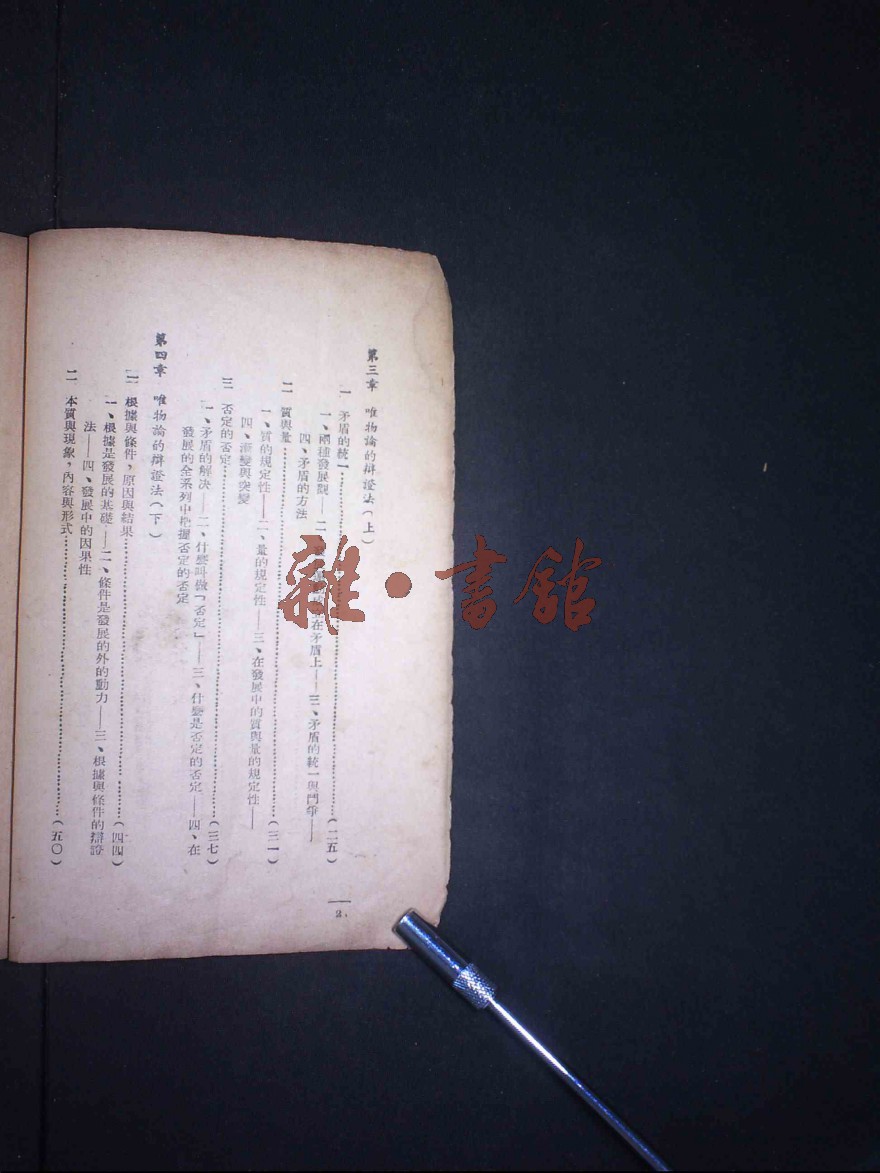 第三章 唯物論的辯證法(上)
一 矛盾的統一……(二五)
一、兩種發展觀——二、在矛盾上——三、矛盾的統一與鬥爭——
四、矛盾的方法
二 質與量……(三一)
一、質的規定性——二、量的規定性——三、在發展中的質與量的規定性——
四、漸變與突變
三 否定的否定……(三七)
一、矛盾的解決——二、什麼叫做「否定」——三、什麼是否定的否定——四、在
發展的全系列中把握否定的否定
第四章 唯物論的辯證法(下)
一 根據與條件,原因與結果……(四四)
一、根據是發展的基礎——二、條件是發展的外的動力——三、根據與條件的辯證
法——四、發展中的因果性
二 本質與現象,內容與形式……(五〇)
2
雜·書館